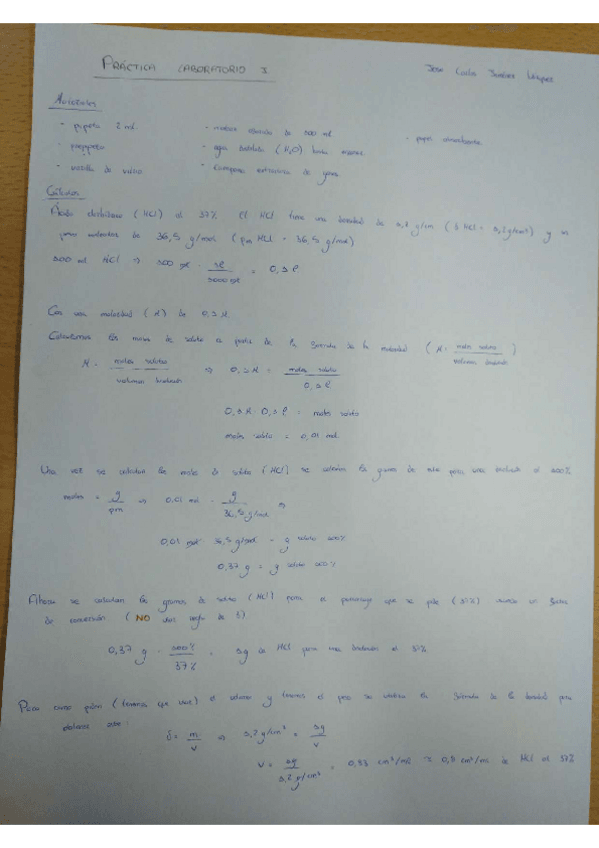 PRÁCTICA LABORATORIO 1
Jose Carlos
Materiales
- pipeta 2 ml. - matraz de 100 ml
- agua destilada (H₂O) hasta
- de vidrio
Cálculos
(HCl) al 37% El HCl tiene una densidad de 1,2 g/cm³ (δ HCl = 1,2 g/cm³) y un
peso molecular de 36,5 g/mol (pm HCl = 36,5 g/mol)
100 ml HCl ⇒ 100 ml · 1ℓ / 1000 ml = 0,1 ℓ
Con una molaridad (M) de 0,1 M
Calculamos los moles de soluto a partir de la fórmula de la molaridad (M = moles soluto / volumen)
M = moles soluto / volumen ⇒ 0,1 M = moles soluto / 0,1 ℓ
0,1 M · 0,1 ℓ = moles soluto
moles soluto = 0,01 mol
Una vez se calculan los moles de soluto (HCl) se calculan los gramos de este para una al 100%
moles = g / pm ⇒ 0,01 mol = g / 36,5 g/mol ⇒
0,01 mol · 36,5 g/mol = g soluto 100%
0,37 g = g soluto 100%
Ahora se calculan los gramos de soluto (HCl) para el porcentaje que se pide (37%) factor
de conversión (NO regla de 3)
0,37 g · 100% / 37% = 1g de HCl para una al 37%
como (tenemos que usar) el volumen y tenemos el peso se utiliza la fórmula de la densidad para
δ = m / v ⇒ 1,2 g/cm³ = 1g / v
v = 1g / 1,2 g/cm³ = 0,83 cm³/ml ≈ 0,8 cm³/ml de HCl al 37%